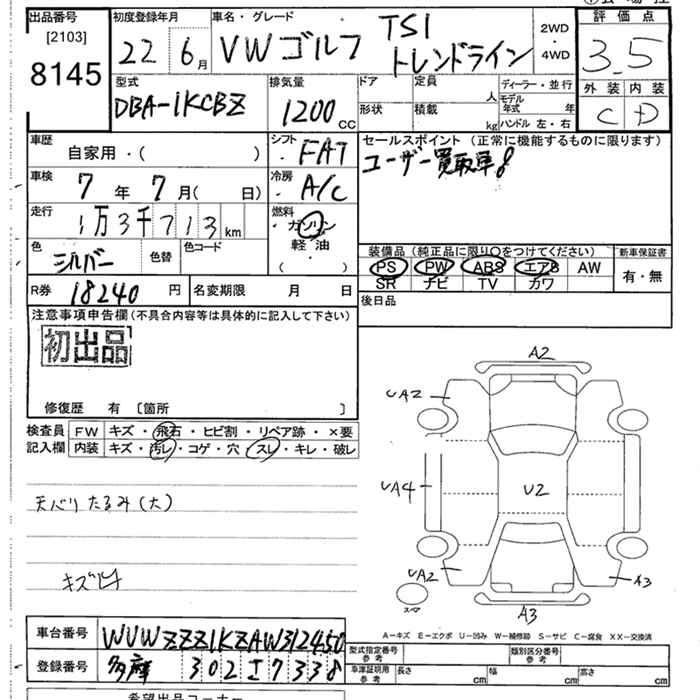 出品番号 [2103] 8145
初度登録年月 22 6月
車名・グレード VWゴルフ TSI トレンドライン
2WD・4WD
評価点 3.5
型式 DBA-1KCBZ
排気量 1200cc
ドア 形状
定員 人 積載 kg
ディーラー・並行
モデル年式 年
ハンドル 左・右
外装 C 内装 D
車歴 自家用・( )
シフト・FAT
セールスポイント (正常に機能するものに限ります)
ユーザー買取車8
車検 7年7月( 日)
冷房・A/C
走行 1万3千713km
燃料・ガソリン 軽油・( )
色 シルバー 色替 色コード
装備品(純正品に限り○をつけてください) 新車保証書
PS PW ABS エアB AW 有・無
SR ナビ TV カワ
R券 18240円 名変期限 月 日
後日品
注意事項申告欄(不具合内容等は具体的に記入して下さい)
初出品
修復歴 有 〔箇所 〕
検査員記入欄
FW キズ・飛石・ヒビ割・リペア跡・×要
内装 キズ・汚れ・コゲ・穴・スレ・キレ・破レ
天バリたるみ(大)
キズ
A2
UA2
UA4
U2
UA2
スペア
A3
A3
A-キズ E-エクボ U-凹み W-補修跡 S-サビ C-腐食 XX-交換済
車台番号 WVWZZZ1KZAW312450
登録番号 多摩 302 さ 7338
型式指定番号 参考 類別区分番号 参考
車庫証明用 参考 長さ cm 幅 cm 高さ cm
希望出品コーナー